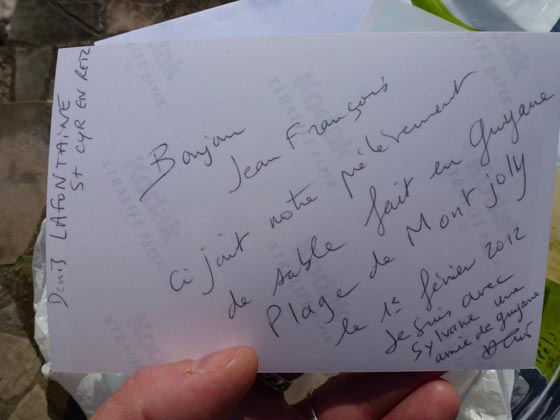 Bonjour
Jean François
Ci joint notre prélèvement
de sable fait en Guyane
Plage de Montjoly
le 1er février 2012
Je suis avec
Sylvane une
amie de guyane
Denis
Denis LAFONTAINE
St CYR EN RETZ
Kodak
XTRALIFE PAPER